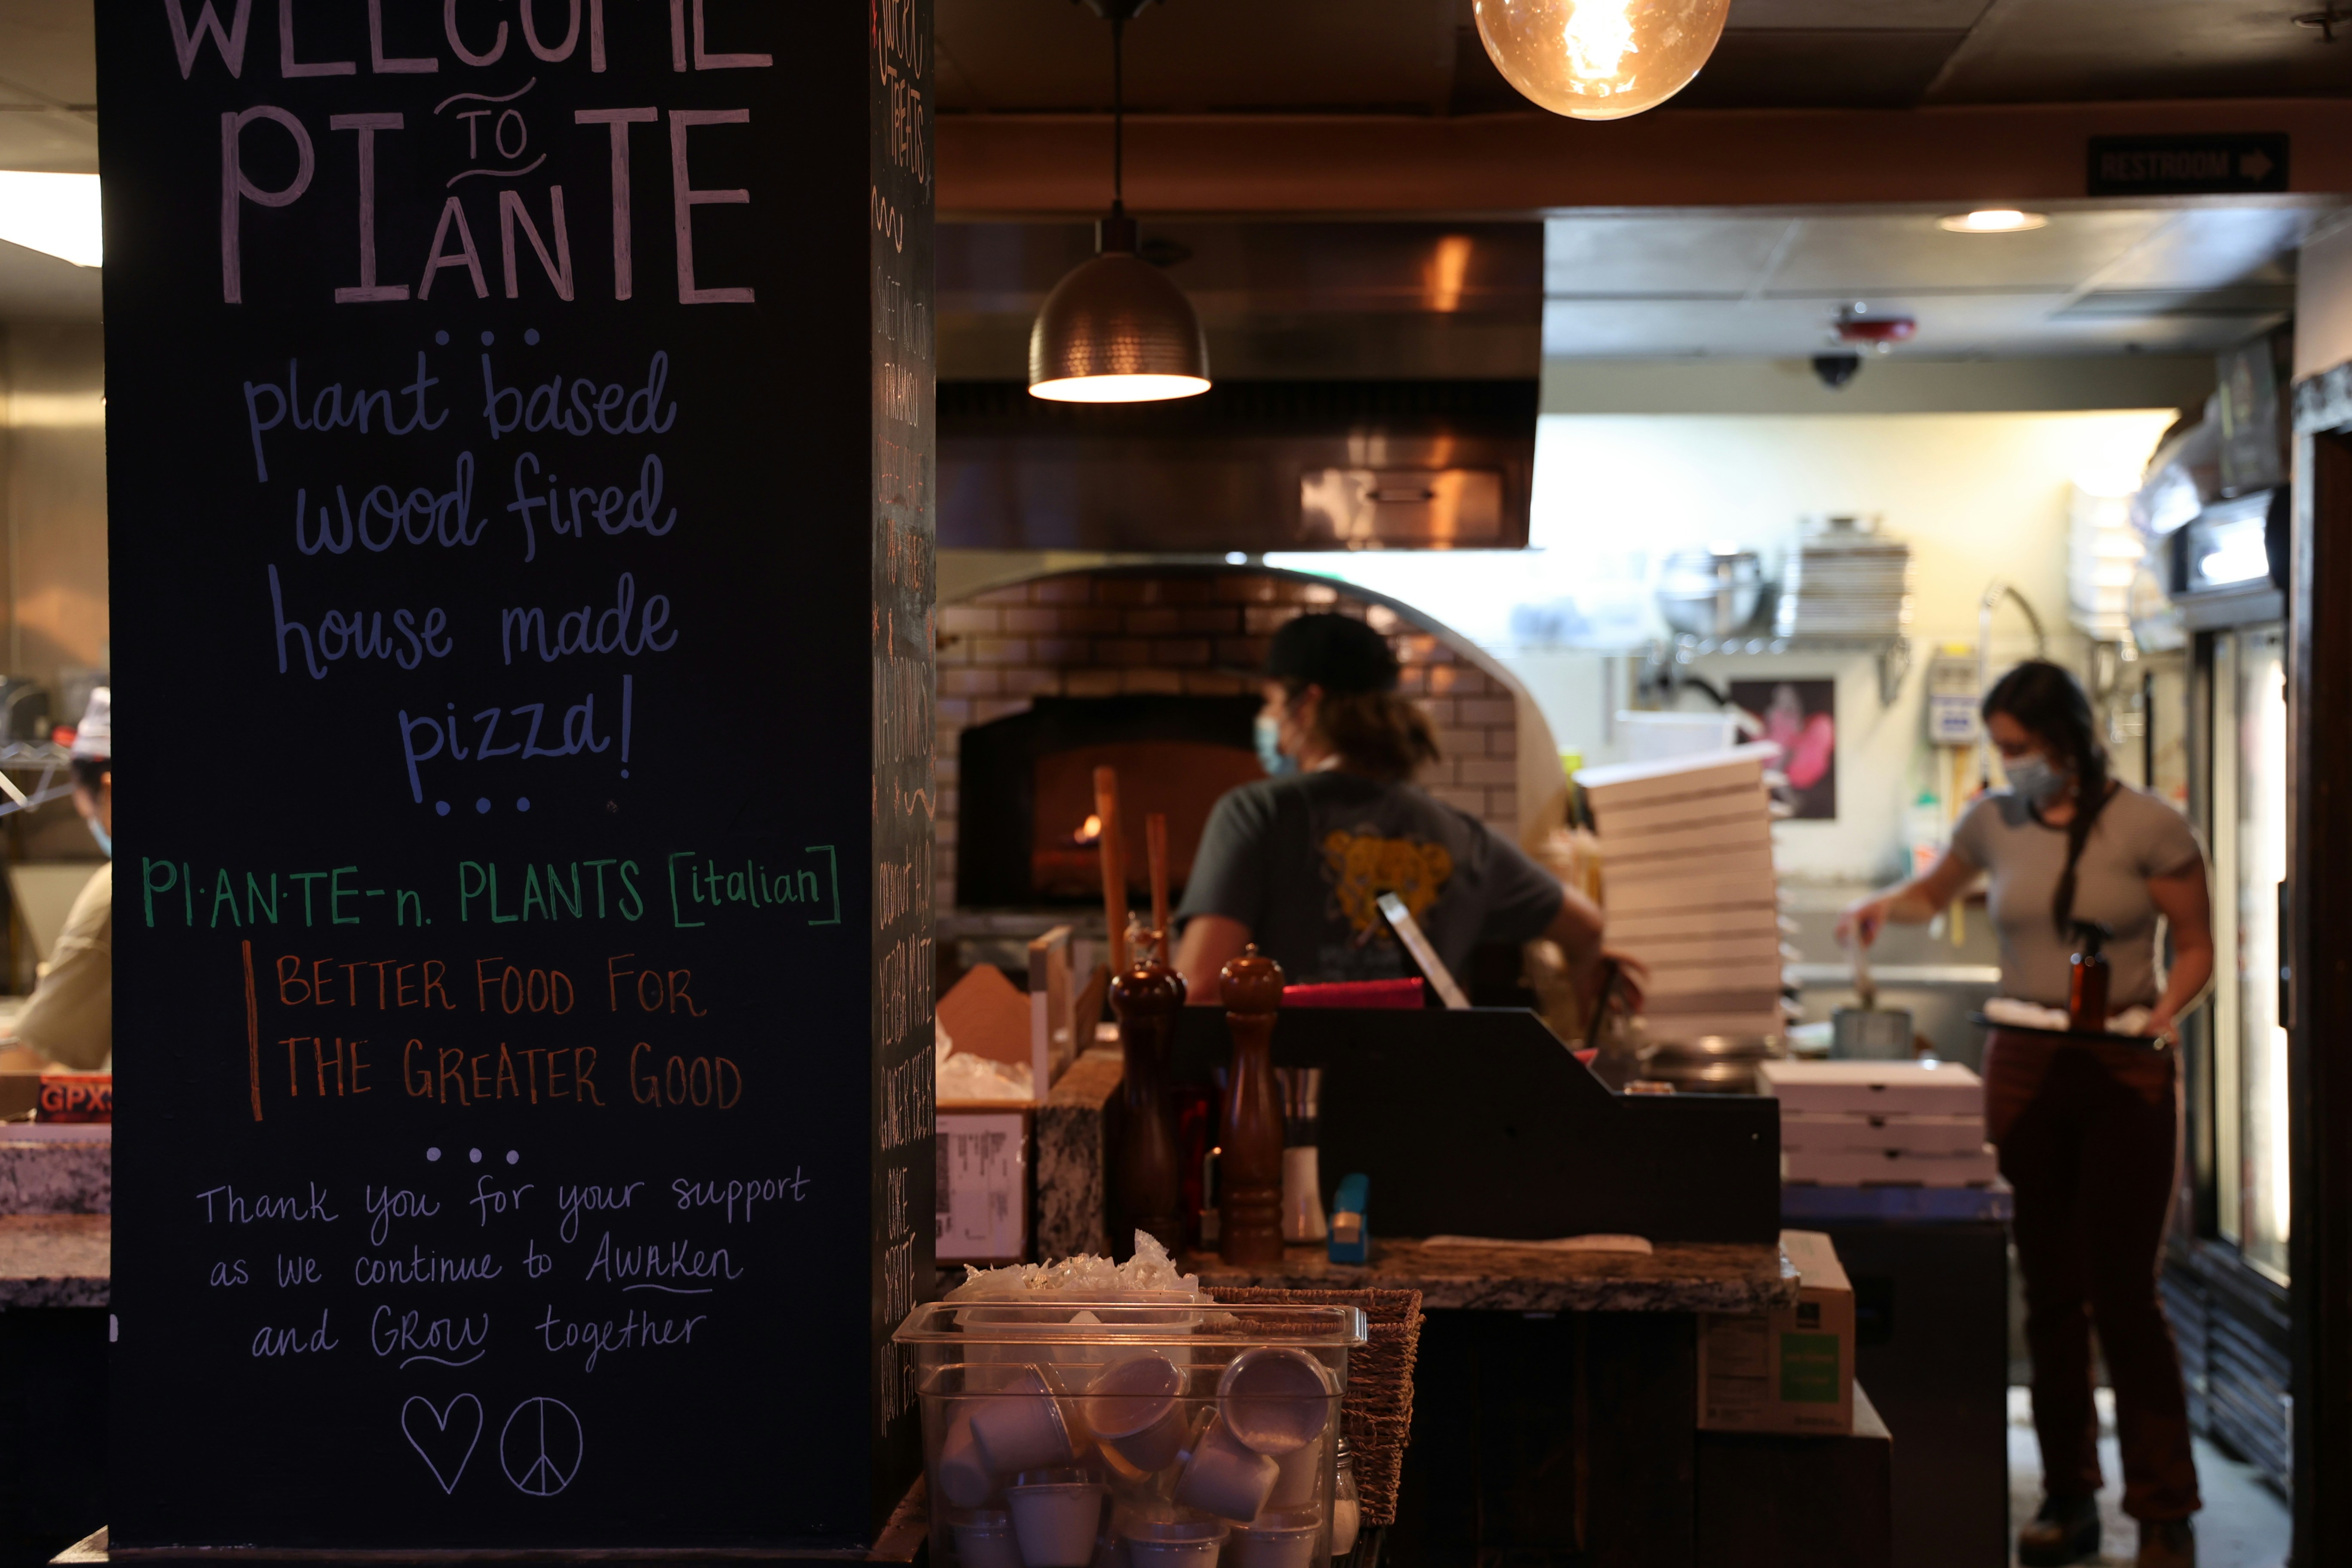 WELCOME
TO
PIANTE
plant based
wood fired
house made
pizza!
PI·AN·TE-n. PLANTS [italian]
BETTER FOOD FOR
THE GREATER GOOD
Thank you for your support
as we continue to AWAKEN
and GROW together
SWEET
TREATS
GINGER BEER
COKE
SPRITE
RESTROOM